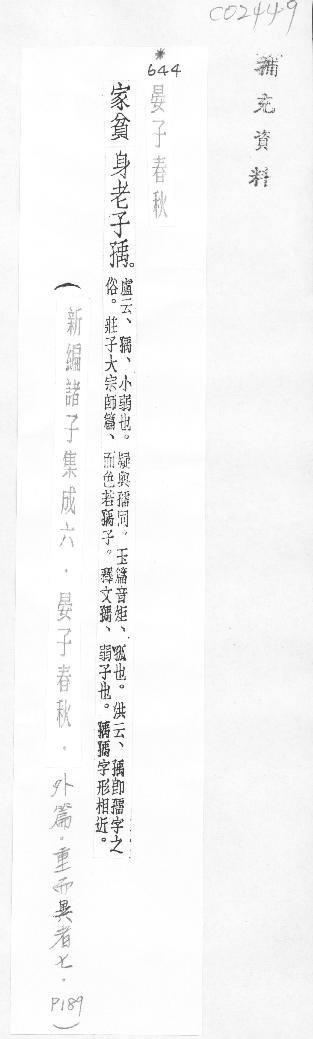 C02449
補充資料
*
644
晏子春秋
家貧身老子㺄。
盧云、㺄、小弱也。疑與孺同。玉篇音矩、孤也。洪云、㺄卽孺字之
俗。莊子大宗師篇、而色若孺子。釋文孺、弱子也。㺄孺字形相近。
(新編諸子集成六．晏子春秋．外篇。重而異者七．P189)